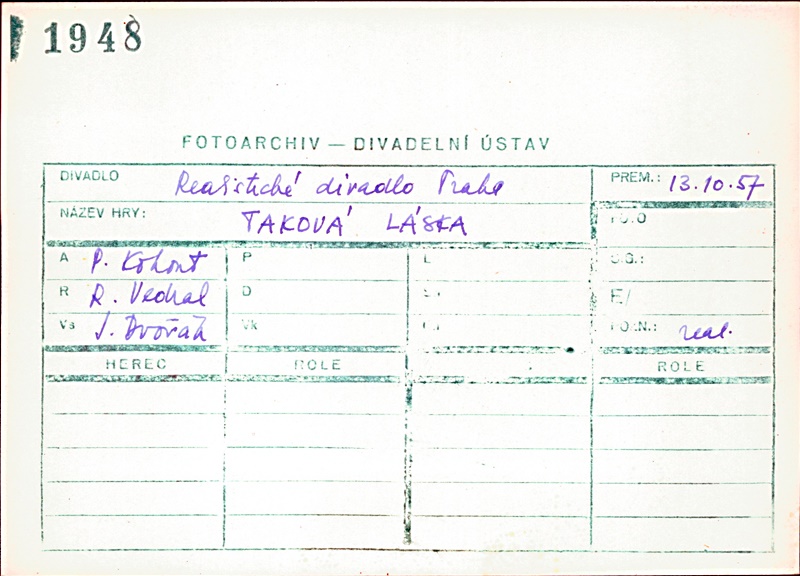 1948
FOTOARCHIV — DIVADELNÍ ÚSTAV
DIVADLO Realistické divadlo Praha PREM.: 13.10.57
NÁZEV HRY: TAKOVÁ LÁSKA FOTO
A P. Kohout P L SIG.:
R R. Vedral D F/
Vs J. Dvořák Vk POZN.: real.
HEREC ROLE ROLE